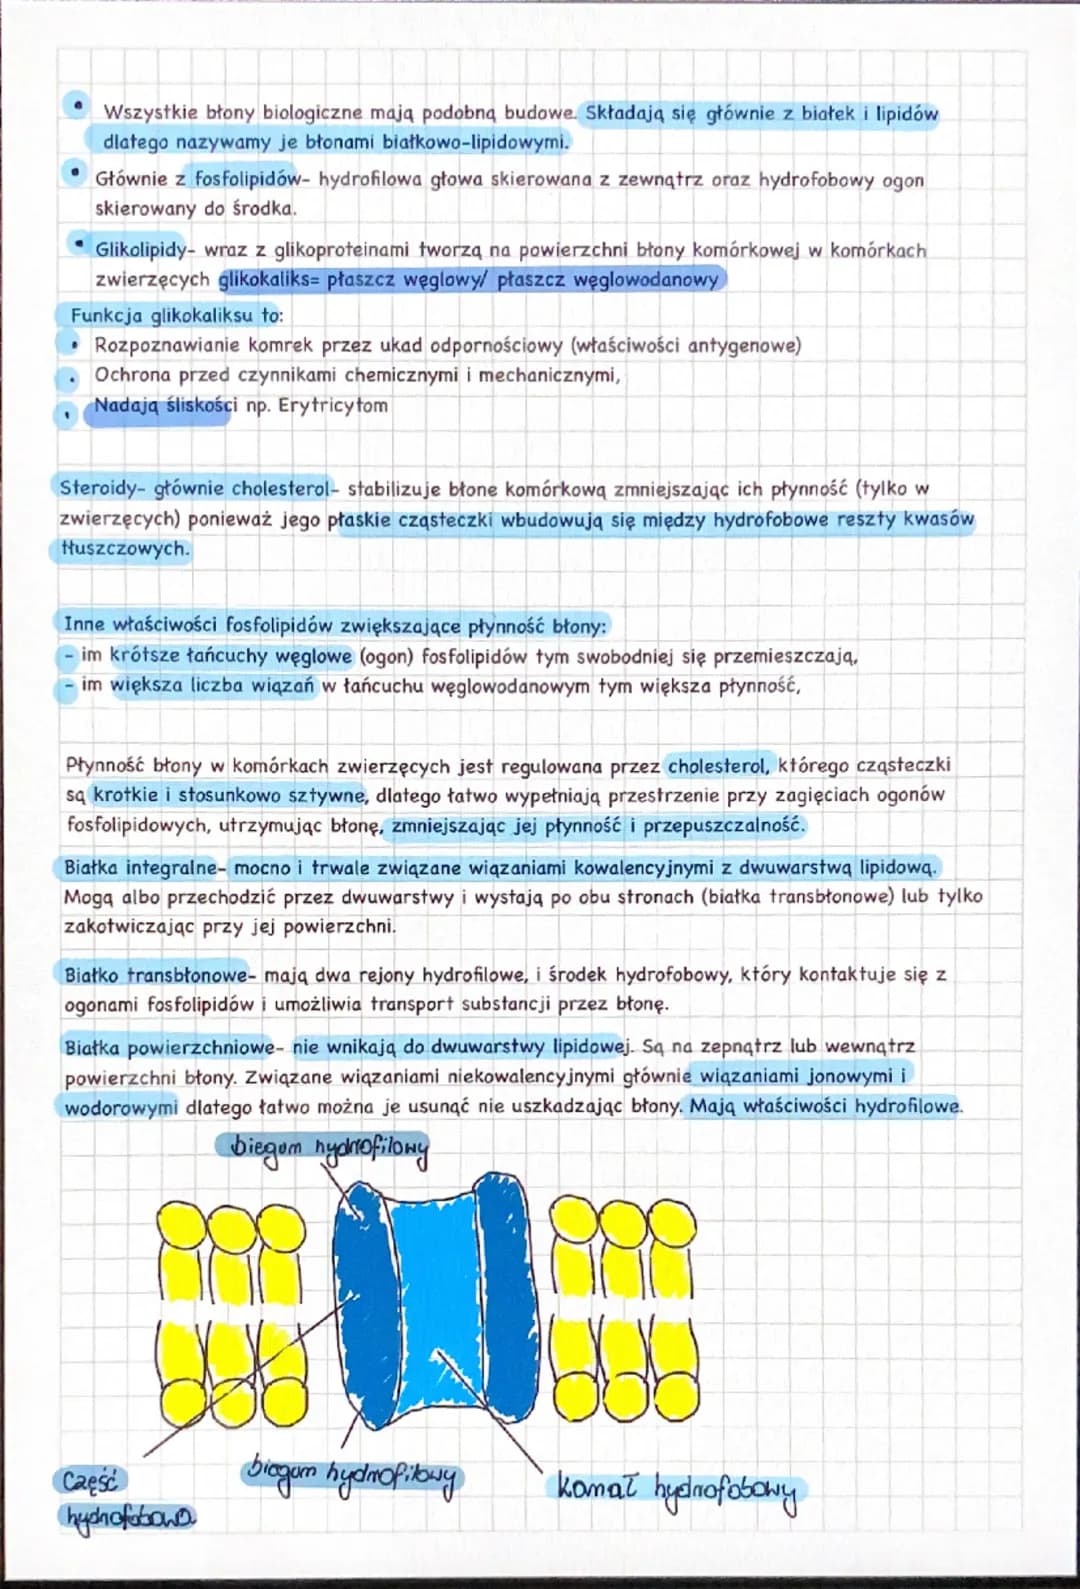 Wszystkie błony biologiczne mają podobną budowe. Składają się głównie z białek i lipidów
dlatego nazywamy je błonami białkowo-lipidowymi.
Głównie z fosfolipidów- hydrofilowa głowa skierowana z zewnątrz oraz hydrofobowy ogon
skierowany do środka.
Glikolipidy- wraz z glikoproteinami tworzą na powierzchni błony komórkowej w komórkach
zwierzęcych glikokaliks= płaszcz węglowy/ płaszcz węglowodanowy
Funkcja glikokaliksu to:
• Rozpoznawianie komrek przez ukad odpornościowy (właściwości antygenowe)
• Ochrona przed czynnikami chemicznymi i mechanicznymi,
• Nadają śliskości np. Erytricytom
Steroidy- głównie cholesterol- stabilizuje błone komórkową zmniejszając ich płynność (tylko w
zwierzęcych) ponieważ jego płaskie cząsteczki wbudowują się między hydrofobowe reszty kwasów
tłuszczowych.
Inne właściwości fosfolipidów zwiększające płynność błony:
- im krótsze łańcuchy węglowe (ogon) fosfolipidów tym swobodniej się przemieszczają,
- im większa liczba wiązań w łańcuchu węglowodanowym tym większa płynność,
Płynność błony w komórkach zwierzęcych jest regulowana przez cholesterol, którego cząsteczki
są krotkie i stosunkowo sztywne, dlatego łatwo wypełniają przestrzenie przy zagięciach ogonów
fosfolipidowych, utrzymując błonę, zmniejszając jej płynność i przepuszczalność.
Białka integralne- mocno i trwale związane wiązaniami kowalencyjnymi z dwuwarstwą lipidową.
Mogą albo przechodzić przez dwuwarstwy i wystają po obu stronach (białka transbłonowe) lub tylko
zakotwiczając przy jej powierzchni.
Białko transbłonowe- mają dwa rejony hydrofilowe, i środek hydrofobowy, który kontaktuje się z
ogonami fosfolipidów i umożliwia transport substancji przez błonę.
Białka powierzchniowe- nie wnikają do dwuwarstwy lipidowej. Są na zepnątrz lub wewnątrz
powierzchni błony. Związane wiązaniami niekowalencyjnymi głównie wiązaniami jonowymi i
wodorowymi dlatego łatwo można je usunąć nie uszkadzając błony. Mają właściwości hydrofilowe.
biegum hydrofilowy
Część
hydrofobowa
biegum hydrofilowy
Kamał hydrofobowy